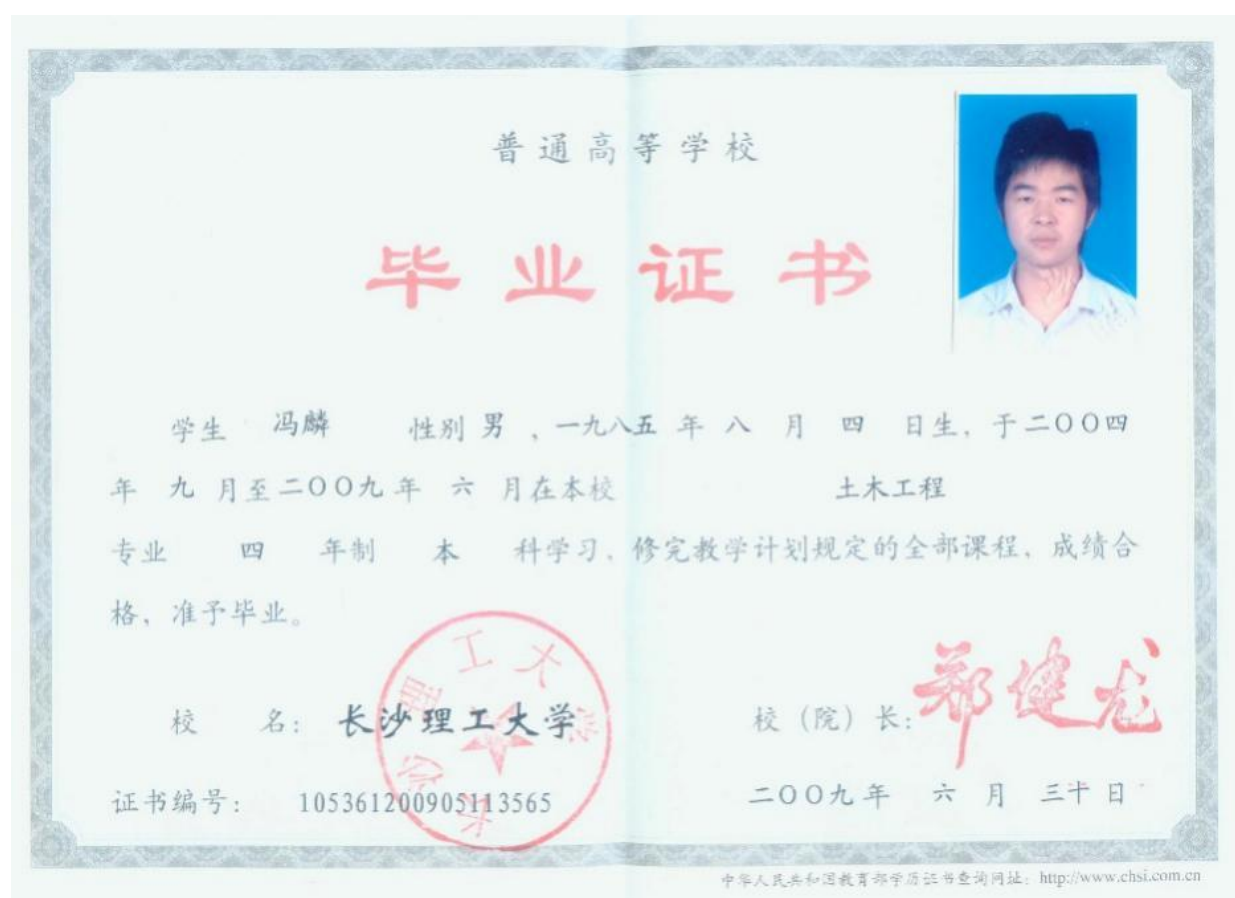 普通高等学校
毕业证书
学生 冯麟 性别 男 ，一九八五 年 八 月 四 日生，于二OO四
年 九 月至二OO九年 六 月在本校 土木工程
专业 四 年制 本 科学习，修完教学计划规定的全部课程，成绩合
格，准予毕业。
长沙理工大学
校 名： 长沙理工大学 校（院）长：郑健龙
证书编号： 105361200905113565 二OO九年 六 月 三十 日
中华人民共和国教育部学历证书查询网址：http://www.chsi.com.cn